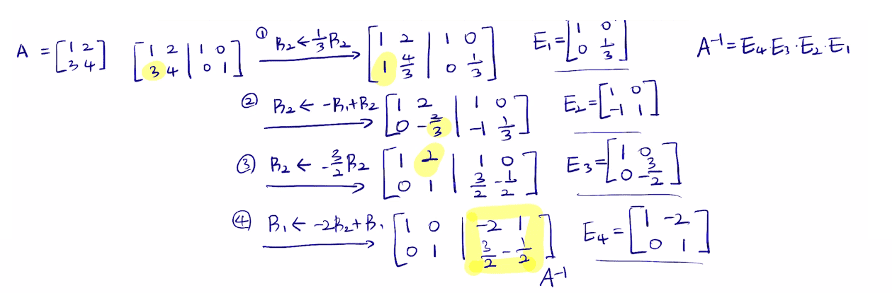 A = [1 2; 3 4] [1 2 | 1 0; 3 4 | 0 1] ① R₂ ← 1/3 R₂ → [1 2 | 1 0; 1 4/3 | 0 1/3] E₁ = [1 0; 0 1/3] A⁻¹ = E₄ E₃ · E₂ · E₁
② R₂ ← -R₁ + R₂ → [1 2 | 1 0; 0 -2/3 | -1 1/3] E₂ = [1 0; -1 1]
③ R₂ ← -3/2 R₂ → [1 2 | 1 0; 0 1 | 3/2 -1/2] E₃ = [1 0; 0 -3/2]
④ R₁ ← -2R₂ + R₁ → [1 0 | -2 1; 0 1 | 3/2 -1/2] E₄ = [1 -2; 0 1]
A⁻¹